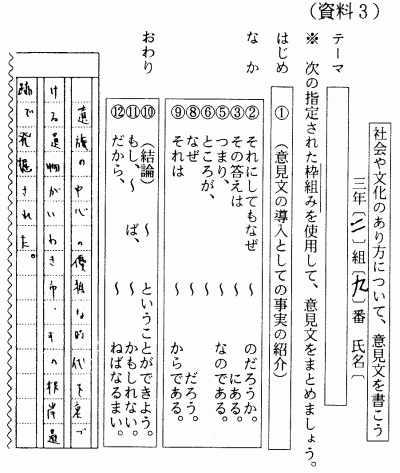 (資料3)
社会や文化のあり方について、意見文を書こう
三年〔二〕組〔九〕番 氏名〔
テーマ
※ 次の指定された枠組みを使用して、意見文をまとめましょう。
はじめ ① (意見文の導入としての事実の紹介)
なか ② それにしてもなぜ ～ のだろうか。
③ その答えは ～ にある。
⑤ つまり、 ～ なのである。
⑥ ところが、 ～
⑧ なぜ ～ だろう。
⑨ それは ～ からである。
おわり ⑩ (結論) ～ ということができよう。
⑪ もし、～ ば、 ～ かもしれない。
⑫ だから、 ～ ねばなるまい。
の中心の優雅な時代を裏づ
ける遺物がいわき市、その根岸遺
跡で発掘された。